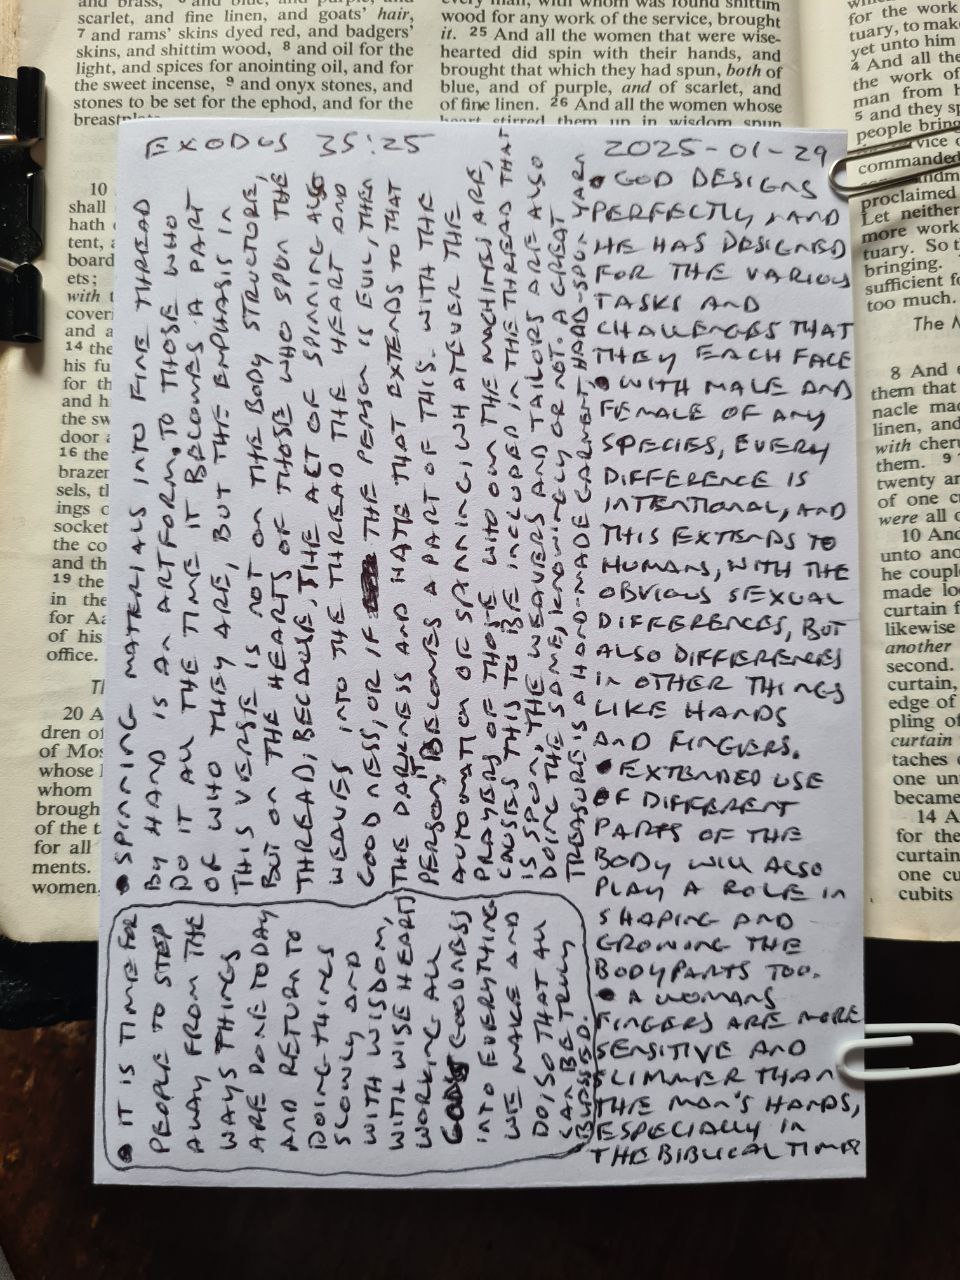 and brass,
scarlet, and fine linen, and goats' hair,
7 and rams' skins dyed red, and badgers'
skins, and shittim wood, 8 and oil for the
light, and spices for anointing oil, and for
the sweet incense, 9 and onyx stones, and
stones to be set for the ephod, and for the
wood for any work of the service, brought
it. 25 And all the women that were wise-
hearted did spin with their hands, and
brought that which they had spun, both of
blue, and of purple, and of scarlet, and
of fine linen. 26 And all the women whose
stirred them up in wisdom spun
EXODUS 35:25
2025-01-29
• GOD DESIGNS
PERFECTLY, AND
HE HAS DESIGNED
FOR THE VARIOUS
TASKS AND
CHALLENGES THAT
THEY EACH FACE
• WITH MALE AND
FEMALE OF ANY
SPECIES, EVERY
DIFFERENCE IS
INTENTIONAL, AND
THIS EXTENDS TO
HUMANS, WITH THE
OBVIOUS SEXUAL
DIFFERENCES, BUT
ALSO DIFFERENCES
IN OTHER THINGS
LIKE HANDS
AND FINGERS.
• EXTENDED USE
OF DIFFERENT
PARTS OF THE
BODY WILL ALSO
PLAY A ROLE IN
SHAPING AND
GROWING THE
BODYPARTS TOO.
• A WOMANS
FINGERS ARE MORE
SENSITIVE AND
SLIMMER THAN
THE MAN'S HANDS,
ESPECIALLY IN
THE BIBLICAL TIMES
• SPINNING MATERIALS INTO FINE THREAD
BY HAND IS AN ARTFORM, TO THOSE WHO
DO IT ALL THE TIME IT BECOMES A PART
OF WHO THEY ARE, BUT THE EMPHASIS IN
THIS VERSE IS NOT ON THE BODY STRUCTURE,
BUT ON THE HEARTS OF THOSE WHO SPUN THE
THREAD, BECAUSE, THE ACT OF SPINNING ALSO
WEAVES INTO THE THREAD THE HEART AND
GOODNESS, OR IF THE PERSON IS EVIL, THEN
THE DARKNESS AND HATE THAT EXTENDS TO THAT
PERSON, IT BECOMES A PART OF THIS. WITH THE
AUTOMATION OF SPANNING, WHATEVER THE
PRAYERS OF THOSE WHO OWN THE MACHINES ARE,
CAUSES THIS TO BE INCLUDED IN THE THREAD THAT
IS SPUN, THE WEAVERS AND TAILORS ARE ALSO
DOING THE SAME, KNOWINGLY OR NOT. A GREAT
TREASURE IS A HAND-MADE GARMENT, HAND-SPUN YARN
• IT IS TIME FOR
PEOPLE TO STEP
AWAY FROM THE
WAYS THINGS
ARE DONE TODAY
AND RETURN TO
DOING THINGS
SLOWLY AND
WITH WISDOM,
WITH WISE HEARTS
WORKING ALL
GOODNESS
INTO EVERYTHING
WE MAKE AND
DO, SO THAT ALL
CAN BE TRULY
BLESSED.
10
shall
hath
tent,
board
ets;
with
and a
14 the
his fu
for th
and h
the sw
door
16 the
brazen
sels,
ings o
socket
the co
and th
19 the
in the
for Aa
of his
office.
20 A
dren of
of Mos
whose
whom
brough
of the
for all
ments.
women
for the work
tuary, to make
yet unto him
4 And all the
the work of
man from h
5 and they sp
people bring
commanded
proclaimed
Let neither
more work
tuary. So
bringing.
sufficient fo
too much.
8 And
them that
nacle mad
linen, and
with cher
them. 9
twenty an
of one
were all
10 And
unto ano
he coupl
made loo
curtain
likewise
another
second.
curtain,
edge of
pling of
curtain
taches
one un
became
14 A
for the
curtain
one cu
cubits